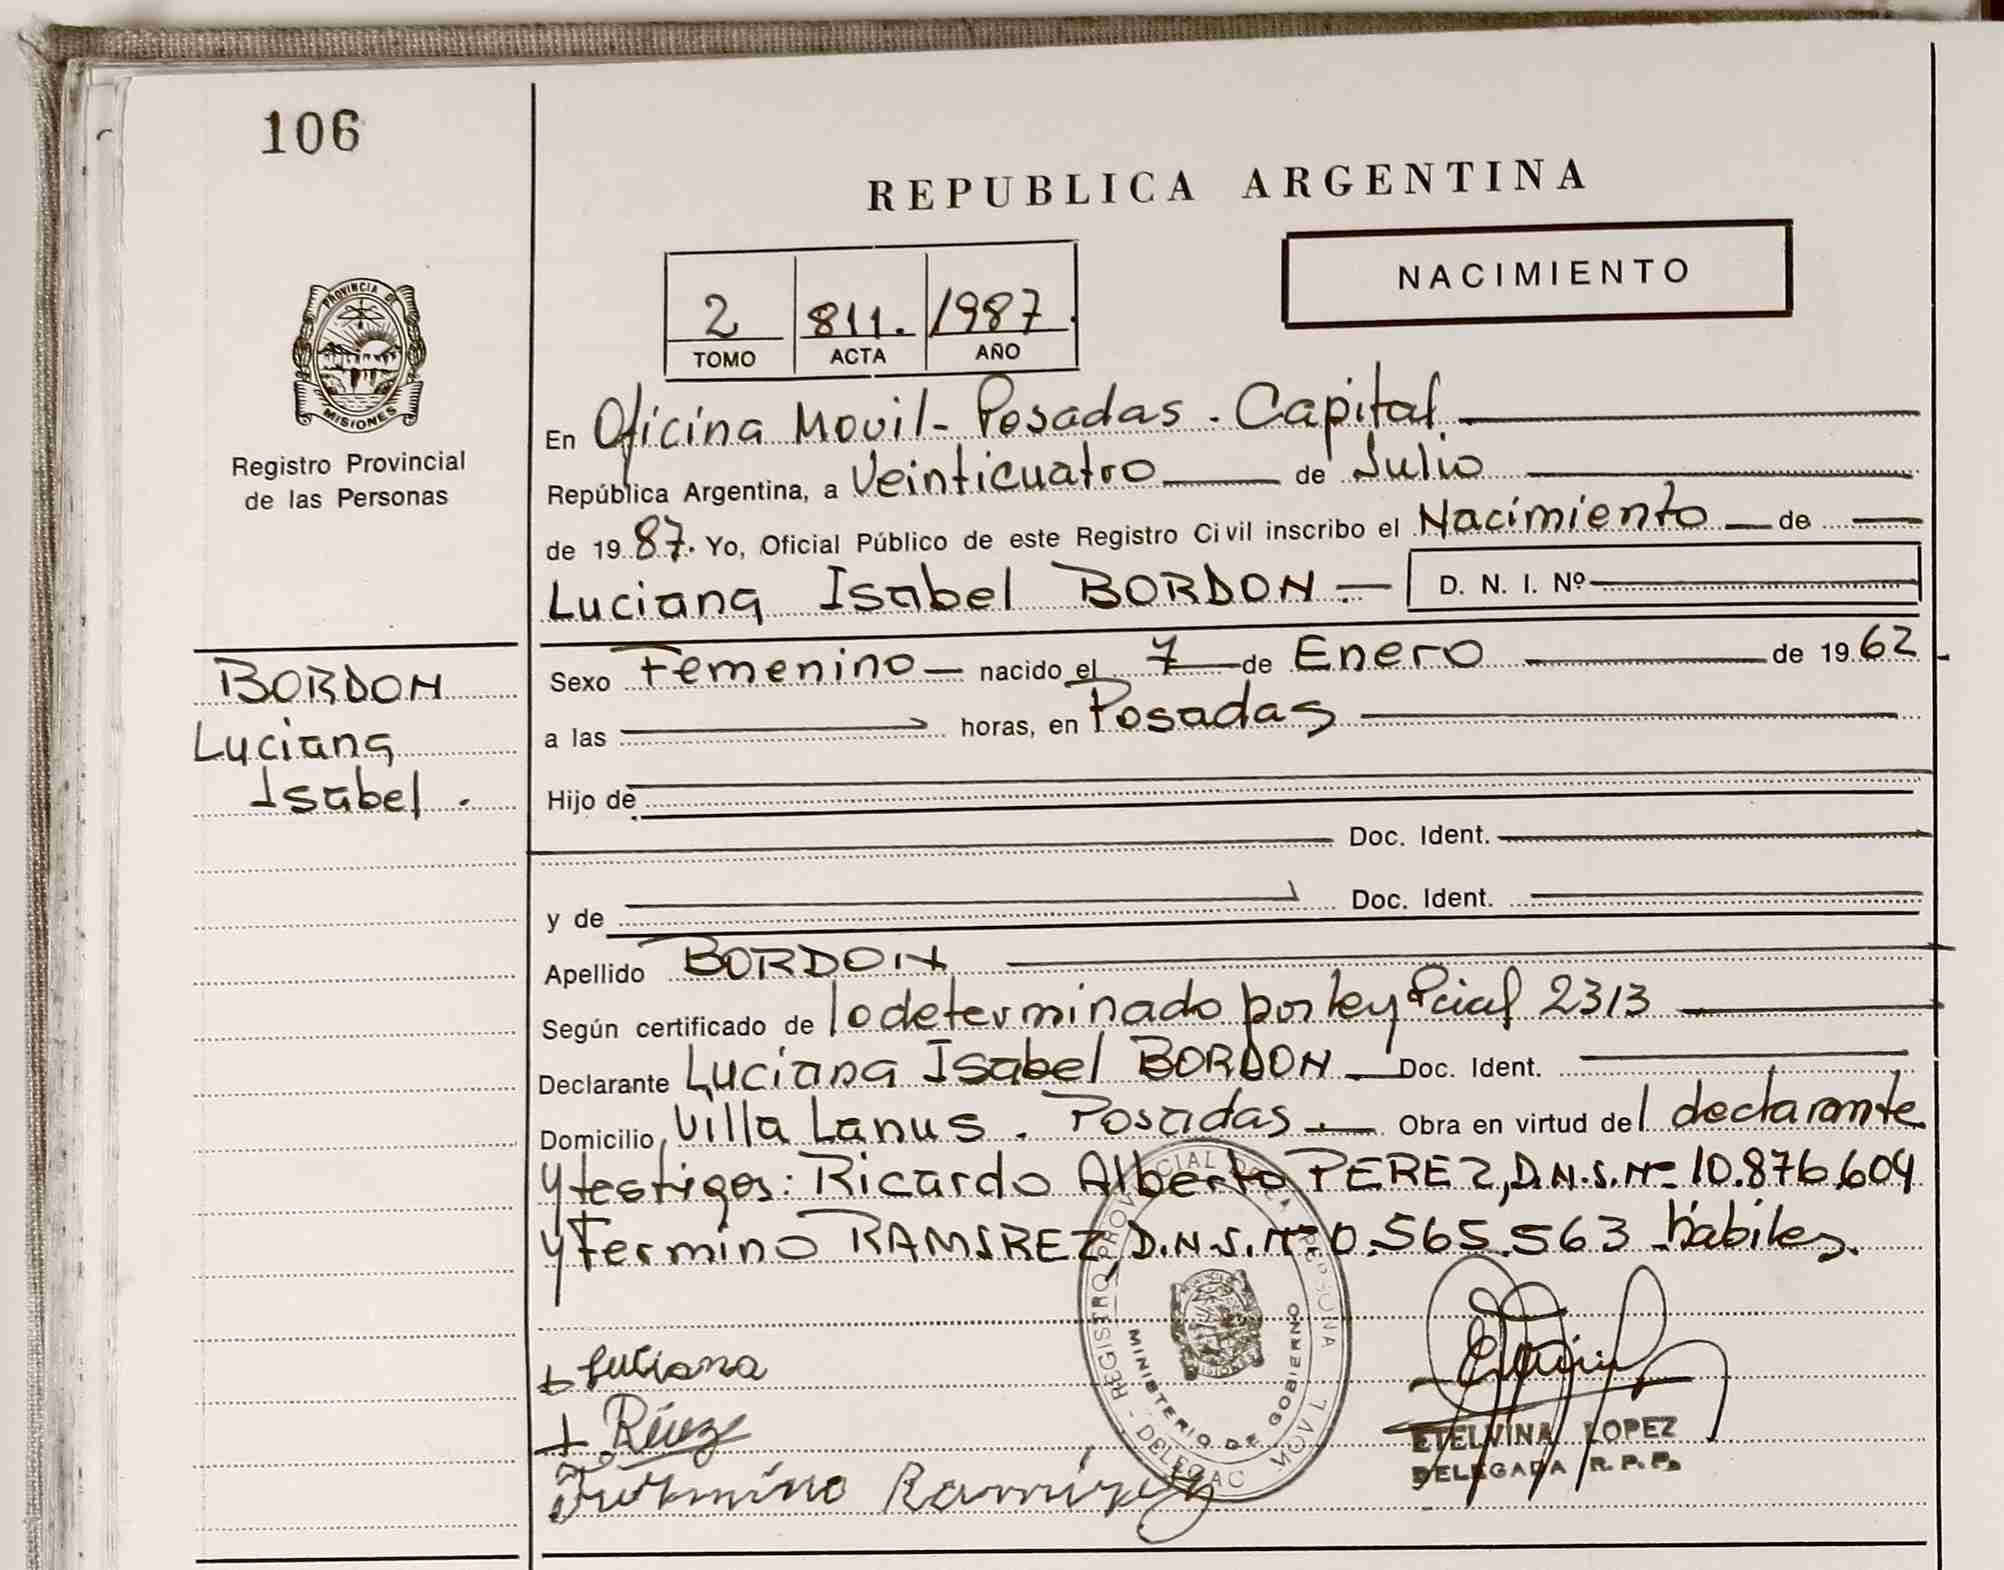 106
REPUBLICA ARGENTINA
NACIMIENTO
2 811. 1987.
TOMO ACTA AÑO
PROVINCIA DE
MISIONES
Registro Provincial
de las Personas
En Oficina Movil - Posadas. Capital
República Argentina, a Veinticuatro de Julio
de 1987. Yo, Oficial Público de este Registro Civil inscribo el Nacimiento de
Luciana Isabel BORDON D. N. I. Nº
BORDON
Luciana
Isabel.
Sexo Femenino nacido el 7 de Enero de 1962
a las horas, en Posadas
Hijo de
Doc. Ident.
y de Doc. Ident.
Apellido BORDON
Según certificado de lo determinado por ley Pcial 2313
Declarante Luciana Isabel BORDON Doc. Ident.
Domicilio Villa Lanus. Posadas Obra en virtud del declarante
y testigos: Ricardo Alberto PEREZ, D.N.I. Nº 10.876.604
y Fermino RAMIREZ D.N.I. Nº 0.565.563 habiles.
Luciana
Fermino Ramirez
REGISTRO PROVINCIAL DE LA PERSONA
MINISTERIO DE GOBIERNO
DELEGAC MOVIL
ETELVINA LOPEZ
DELEGADA R. P. P.